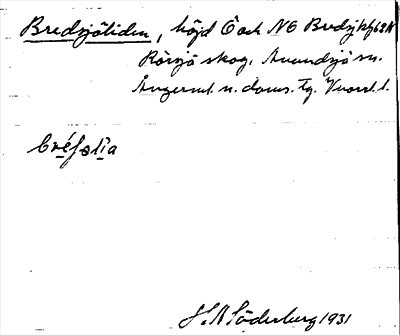 Bredsjöliden, höjd Ö och NÖ Bredsj kbl 62N
Rörsjö skog. Anundsjö sn.
Ångerml. n. doms. tg. Vnorrl. l.
bréʃəlìa
H.N Söderberg 1931